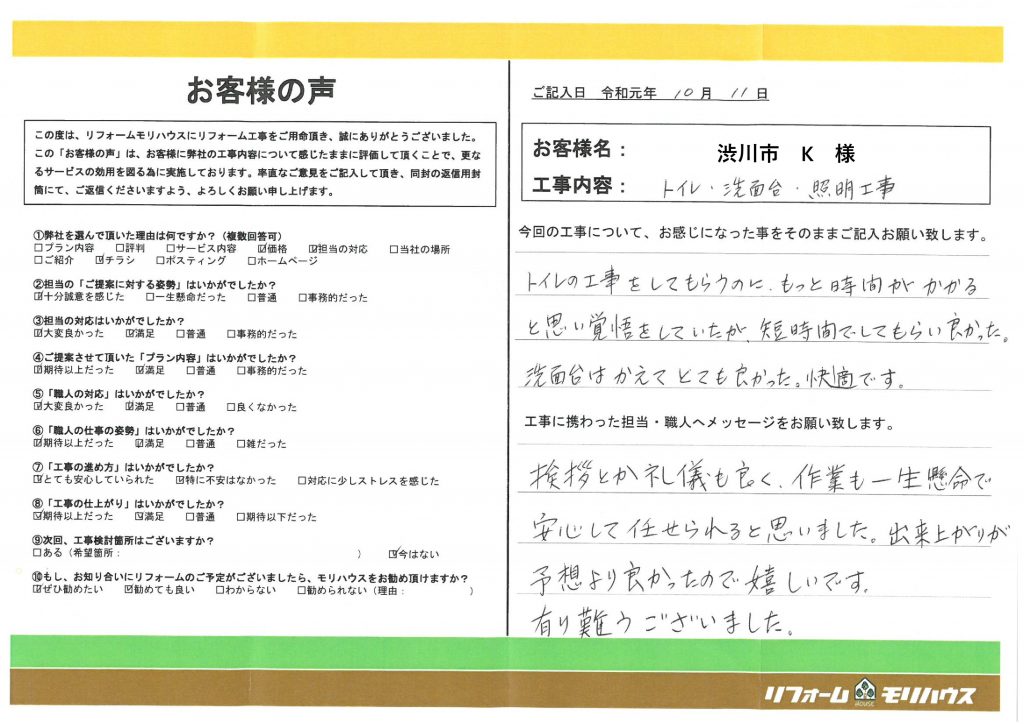 お客様の声
この度は、リフォームモリハウスにリフォーム工事をご用命頂き、誠にありがとうございました。
この「お客様の声」は、お客様に弊社の工事内容について感じたままに評価して頂くことで、更な
るサービスの効用を図る為に実施しております。率直なご意見をご記入して頂き、同封の返信用封
筒にて、ご返信くださいますよう、よろしくお願い申し上げます。
①弊社を選んで頂いた理由は何ですか？（複数回答可）
□プラン内容 □評判 □サービス内容 ☑価格 ☑担当の対応 □当社の場所
□ご紹介 ☑チラシ □ポスティング □ホームページ
②担当の「ご提案に対する姿勢」はいかがでしたか？
☑十分誠意を感じた □一生懸命だった □普通 □事務的だった
③担当の対応はいかがでしたか？
☑大変良かった ☑満足 □普通 □事務的だった
④ご提案させて頂いた「プラン内容」はいかがでしたか？
☑期待以上だった ☑満足 □普通 □事務的だった
⑤「職人の対応」はいかがでしたか？
☑大変良かった ☑満足 □普通 □良くなかった
⑥「職人の仕事の姿勢」はいかがでしたか？
☑期待以上だった ☑満足 □普通 □雑だった
⑦「工事の進め方」はいかがでしたか？
☑とても安心していられた ☑特に不安はなかった □対応に少しストレスを感じた
⑧「工事の仕上がり」はいかがでしたか？
☑期待以上だった ☑満足 □普通 □期待以下だった
⑨次回、工事検討箇所はございますか？
□ある（希望箇所： ） ☑今はない
⑩もし、お知り合いにリフォームのご予定がございましたら、モリハウスをお勧め頂けますか？
☑ぜひ勧めたい ☑勧めても良い □わからない □勧められない（理由： ）
ご記入日 令和元年 10月 11日
お客様名： 渋川市 K 様
工事内容： トイレ・洗面台・照明工事
今回の工事について、お感じになった事をそのままご記入お願い致します。
トイレの工事をしてもらうのに、もっと時間がかかる
と思い覚悟をしていたが、短時間でしてもらい良かった。
洗面台はかえてとても良かった。快適です。
工事に携わった担当・職人へメッセージをお願い致します。
挨拶とか礼儀も良く、作業も一生懸命で
安心して任せられると思いました。出来上がりが
予想より良かったので嬉しいです。
有り難うございました。
リフォーム HOUSE モリハウス